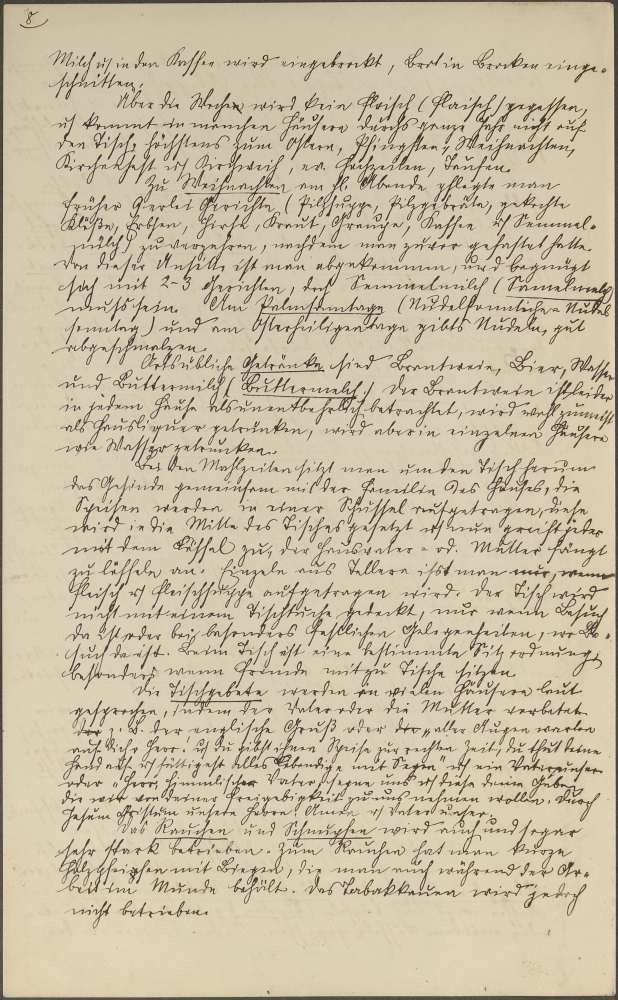 8
Milch u. in den Kaffee wird eingebrockt, Brot in Brocken einge-
schnitten.
Über die Woche wird kein Fleisch (Flaisch) gegessen,
es kommt in manchen Häusern durchs ganze Jahr nicht auf
den Tisch, höchstens zum Ostern, Pfingsten, Weihnachten,
Kirchenfest u. Kirchweih, ev. Hochzeiten, Taufen.
Zu Weihnachten am hl. Abende pflegte man
früher 9erlei Gerichte, (Pilzsuppe, Pilzgebräte, gekochte
Klöße, Erbsen, Hirse, Kraut, Graupe, Kaffee u. Semmel-
milch) zu verzehren, nachdem man zuvor gefastet hatte.
Von dieser Unsitte ist man abgekommen, und begnügt
sich mit 2-3 Gerichten, doch Semmelmilch (Semelmelch)
muss sein. Am Palmsonntage (Nudelsonntiche = Nudel
sonntag) und am Osterheiligentage gibts Nudeln, gut
abgeschmalzen.
Ortsübliche Getränke sind Brantwein, Bier, Wasser
und Buttermilch (Buttermelch.) Der Brantwein ist leider
in jedem Hause als unentbehrlich betrachtet, wird wohl zumeist
als Hausliquer getrunken, wird aber in einzelnen Häusern
wie Wasser getrunken.
Bei den Mahlzeiten sitzt man um den Tisch herum
das Gesinde gemeinsam mit der Familie des Hauses, die
Speisen werden in einer Schüssel aufgetragen, diese
wird in die Mitte des Tisches gesetzt u. nun greift jeder
mit dem Löffel zu, der Hausvater = od. Mutter fängt
zu löffeln an. Einzeln aus Tellern isst man nur, wenn
Fleisch u. Fleischsuppe aufgetragen wird. Der Tisch wird
nicht mit einem Tischtuche gedeckt, nur wenn Besuch
da ist oder bei besonders festlichen Gelegenheiten, wo Be-
such da ist. Beim Tisch ist eine bestimmte Sitzordnung,
besonders wenn Fremde mit zu Tische sitzen.
Die Tischgebete werden in vielen Häusern laut
gesprochen, indem der Vater oder die Mutter vorbetet
z. B. der englische Gruß oder „aller Augen warten
auf dich Herr! u. du gibst ihnen Speise zur rechten Zeit, du thust deine
Hand auf u. sättigest alles Lebendige mit Segen" u. ein Vaterunser
oder „Herr, himmlischer Vater, segne uns u. diese deine Gaben,
die wir von deiner Freigebigkeit zu uns nehmen wollen, durch
Jesum Christum unsern Herrn. Amen u. Vater unser.
Das Rauchen und Schnupfen wird auch und sogar
sehr stark betrieben. Zum Rauchen hat man kurze
Holzpfeifen mit Biegen, die man auch während der Ar-
beit im Munde behält. Das Tabakkauen wird jedoch
nicht betrieben.